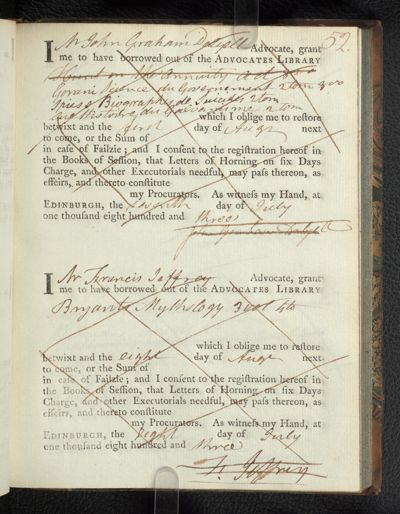 52.
I Mr John Graham Dalyell Advocate, grant
me to have borrowed out of the ADVOCATES LIBRARY
on Annuity
Gorani Science du Gouvernement 2 tom 8vo
Biographie de Suicides 2 tom
Histoire du 2 tom
which I oblige me to reſtore
betwixt and the first day of Augt next
to come, or the Sum of
in caſe of Failzie; and I conſent to the regiſtration hereof in
the Books of Seſſion, that Letters of Horning on ſix Days
Charge, and other Executorials needful, may paſs thereon, as
effeirs, and thereto conſtitute
my Procurators. As witneſs my Hand, at
EDINBURGH, the seventh day of July
one thouſand eight hundred and three
John Graham Dalyell
I Mr Francis Jeffrey Advocate, grant
me to have borrowed out of the ADVOCATES LIBRARY
Bryants Mythology 3 vol 4to
which I oblige me to reſtore
betwixt and the eight day of Augt next
to come, or the Sum of
in caſe of Failzie; and I conſent to the regiſtration hereof in
the Books of Seſſion, that Letters of Horning on ſix Days
Charge, and other Executorials needful, may paſs thereon, as
effeirs, and thereto conſtitute
my Procurators. As witneſs my Hand, at
EDINBURGH, the eight day of July
one thouſand eight hundred and three
F. Jeffrey